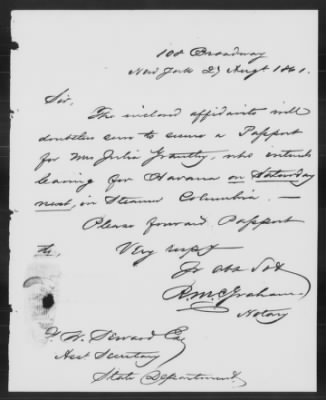 108 Broadway
New York 27 Augt 1861.
Sir,
The inclosed affidavits will
doubtless serve to secure a Passport
for Mrs Julia, who intends
leaving for Havana on Saturday
next, in Steamer Columbia. —
Please forward Passport
Very respy
Yr obt Svt
R. McGraham
Notary
F. W. Seward Esq
Asst Secretary
State Department,